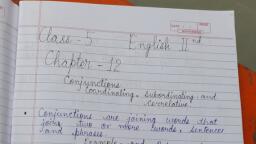 Class - 5 English IInd
Chapter - 12
Conjunctions
Coordinating, Subordinating and
Co-relative
• Conjunctions are joining words that
joins two or more words, sentences
and phrases.